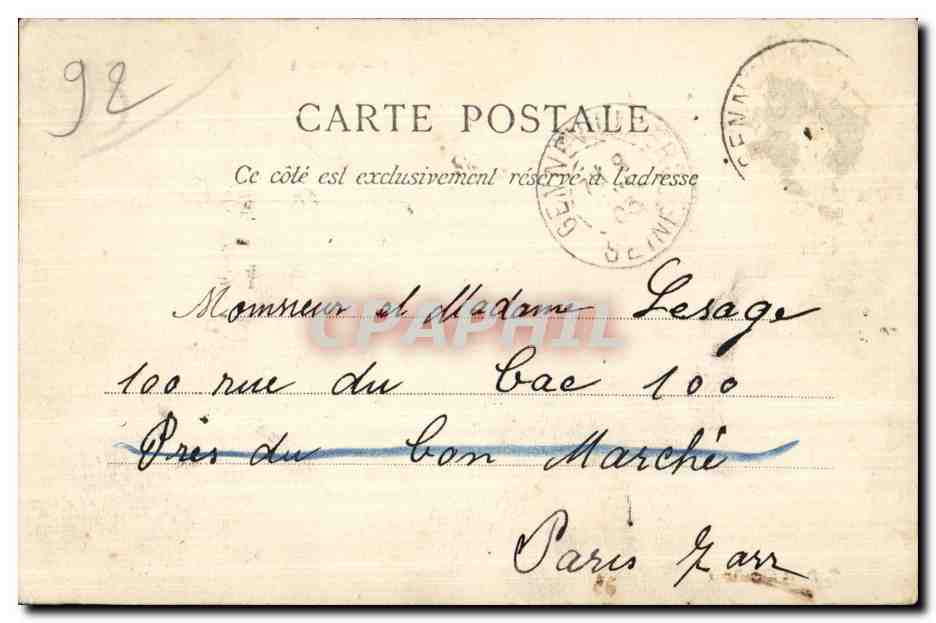 92
CARTE POSTALE
Ce côté est exclusivement réservé à l'adresse
GENNEVILLIERS
SEINE
GENN
Monsieur et Madame Lesage
CPAPHIL
100 rue du Bac 100
Près du Bon Marché
Paris 7 arr